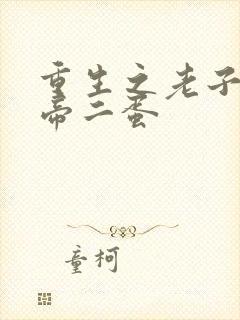 重生之老子
帝二蛋
童柯